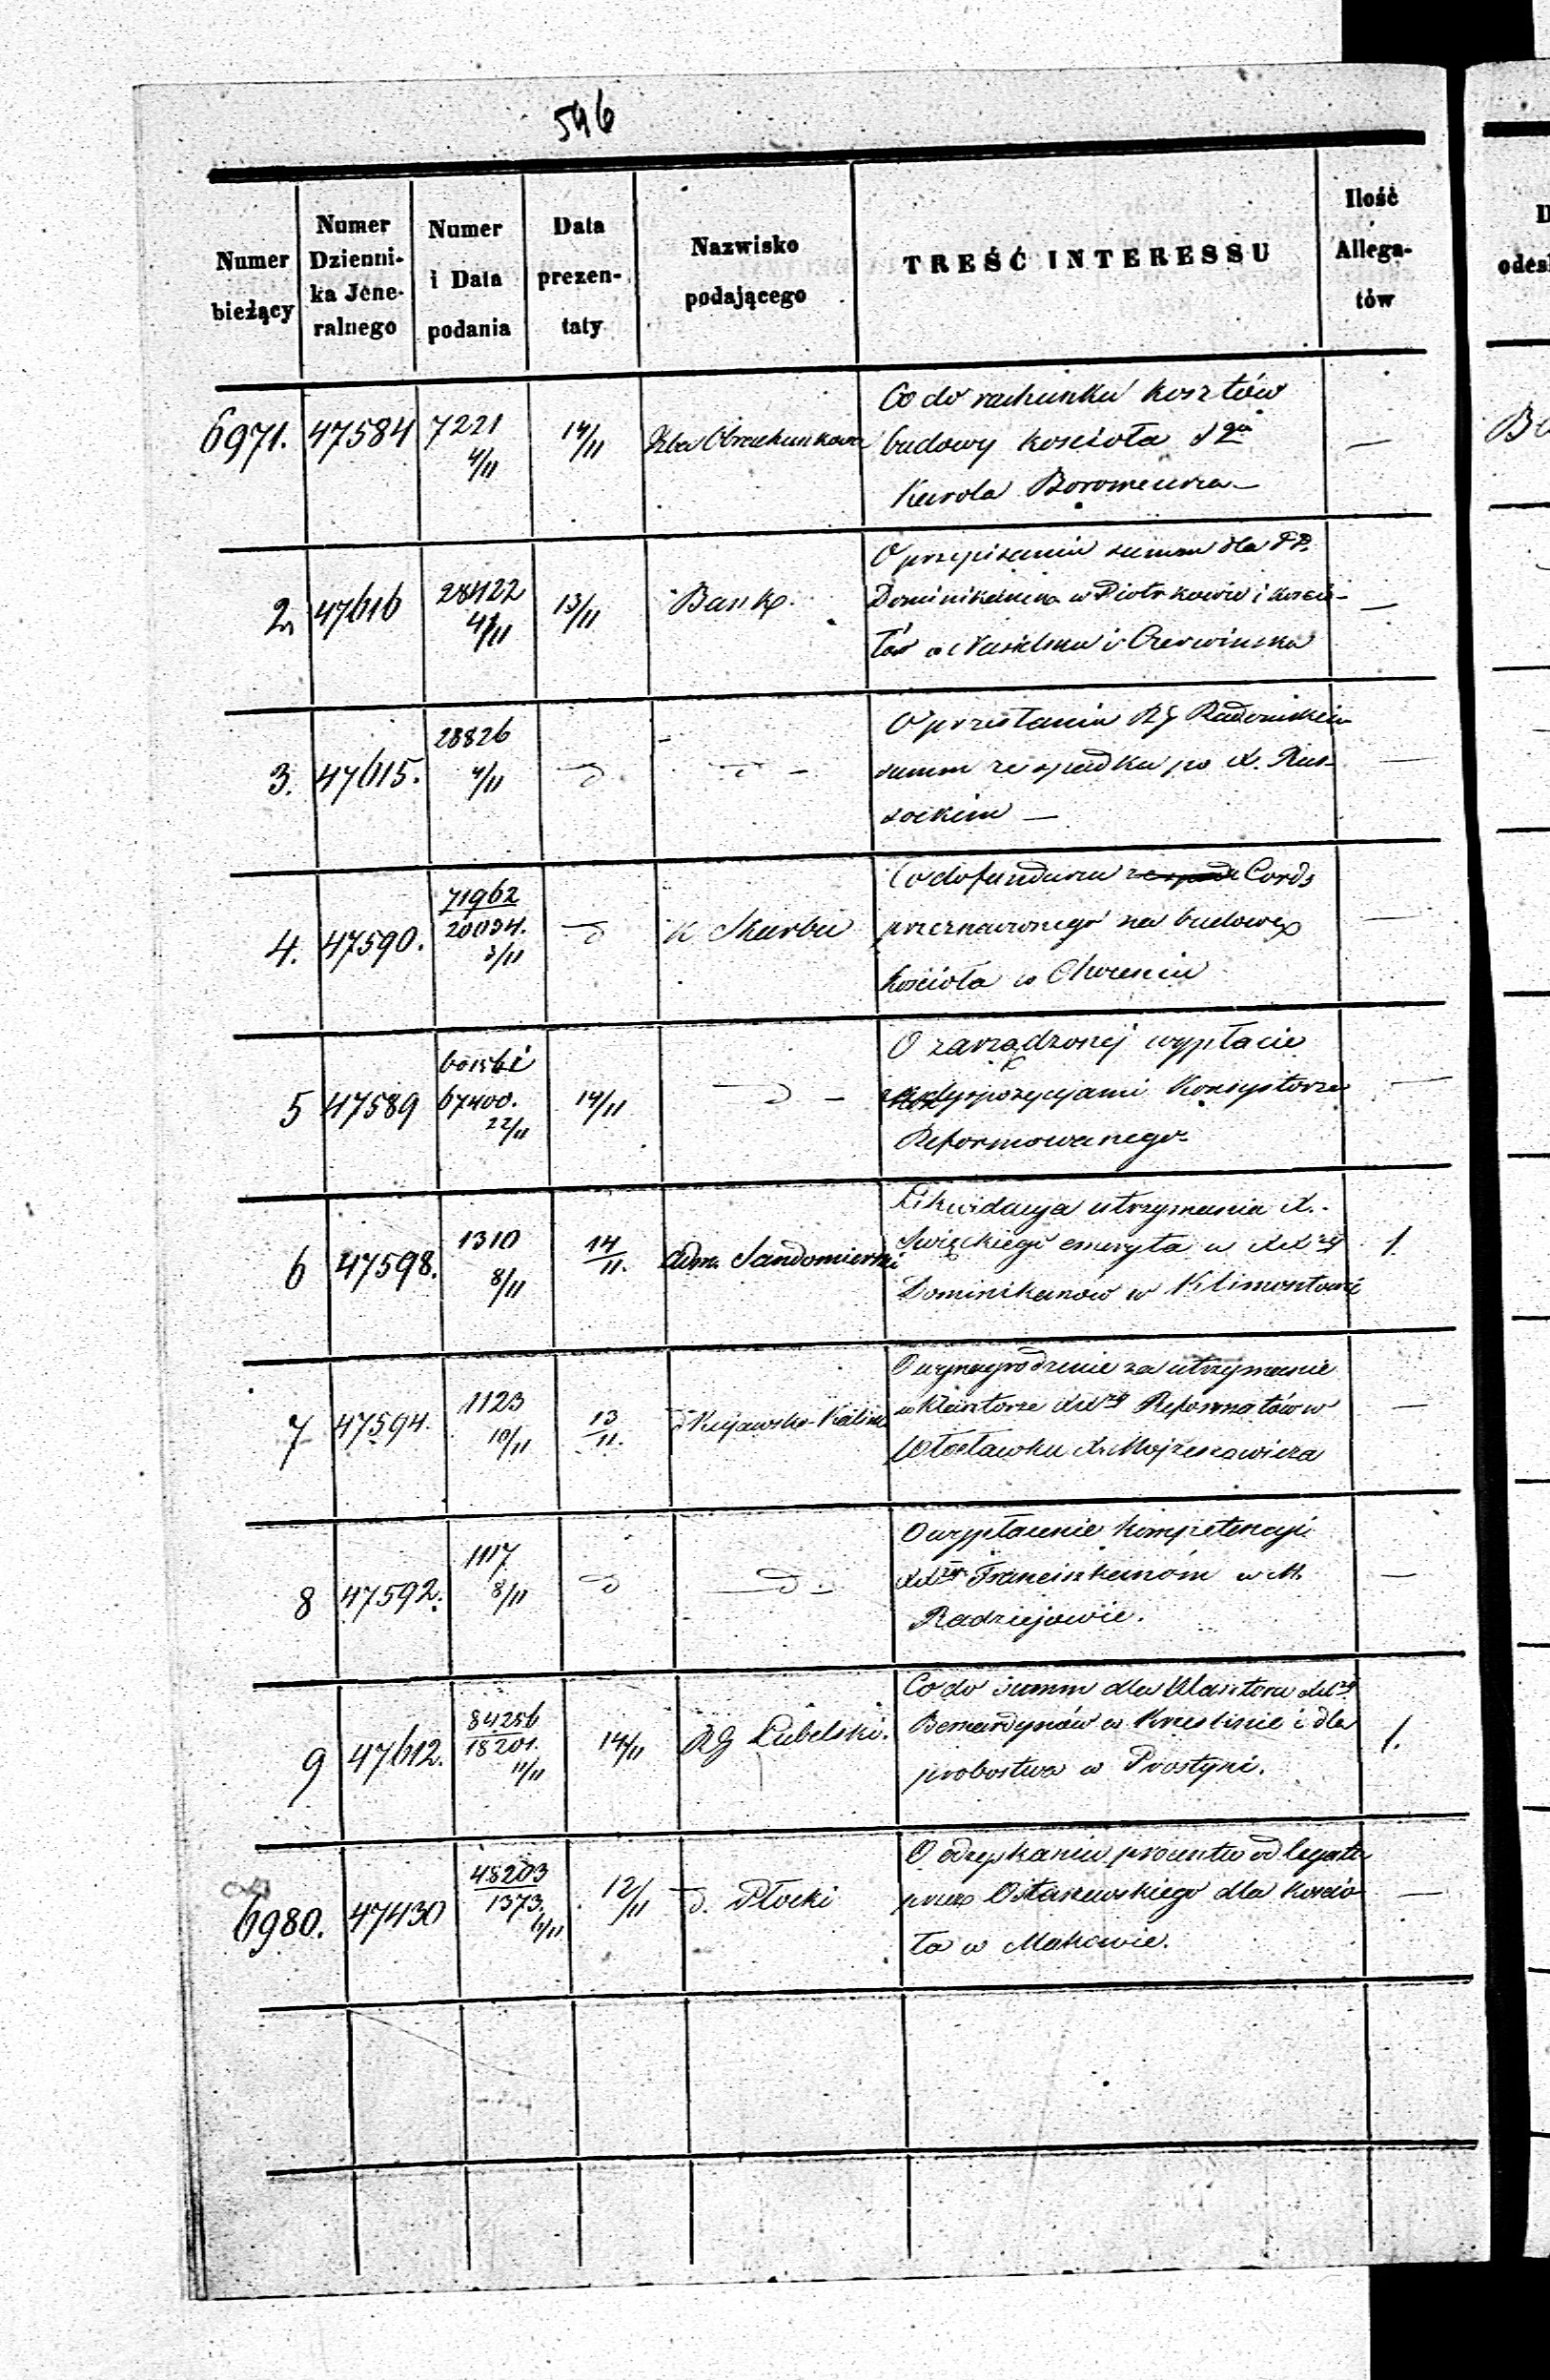 546
Numer bieżący
Numer Dzienni- ka Jene- ralnego
Numer i Data podania
Data prezen- taty
Nazwisko podającego
TREŚĆ INTERESSU
Ilość Allega- tów
6971. 47584 7221 4/11 14/11 Izba Obrachunkowa Co do rachunku kosztów
budowy kościoła Sgo
Karola Boromeusza —
2 47616 28422 4/11 13/11 Bank O przepisaniu summ dla PP.
Dominikanek w Piotrkowie i kościo-
łów w Nasielsku i Czerwińsku —
3. 47615. 28826 4/11 d d O przesłaniu RG Radomskiemu
summ ze spadku po X. Rus-
sockim — —
4. 47590. 71962 20034. 3/11 d K Skarbu Co do funduszu Cords
przeznaczonego na budowę
kościoła w —
5 47589 67400. 22/11 14/11 d O zarządzonej wypłacie
dyspozycjami Konsystorza
Reformowanego —
6 47598. 1310 8/11 14/11. Adm. Sandomierski Likwidacja utrzymania X.
Swięckiego emeryta u XXży
Dominikanow w Klimontowie 1.
7 47594. 1123 10/11 13/11. d Kujawsko-Kalis. O wynagrodzenie za utrzymanie
w Klasztorze XXży Reformatów w
Włocławku X. Mojżeszowicza —
8 47592. 1117 8/11 d d O wypłacenie kompetencyi
XXżom Franciszkanóm w M.
Radziejowie. —
9 47612. 84256 18201. 11/11 14/11 RG Lubelski. Co do summ dla Klasztoru XXży
Bernardynów w Krześlinie i dla
probostwa w Prostyni. 1.
6980. 47430 48203 1373. 11/11 12/11 d. Płocki O odzyskaniu procentu od legatu
przez Ostaszewskiego dla kościo-
ła w Makowie. —